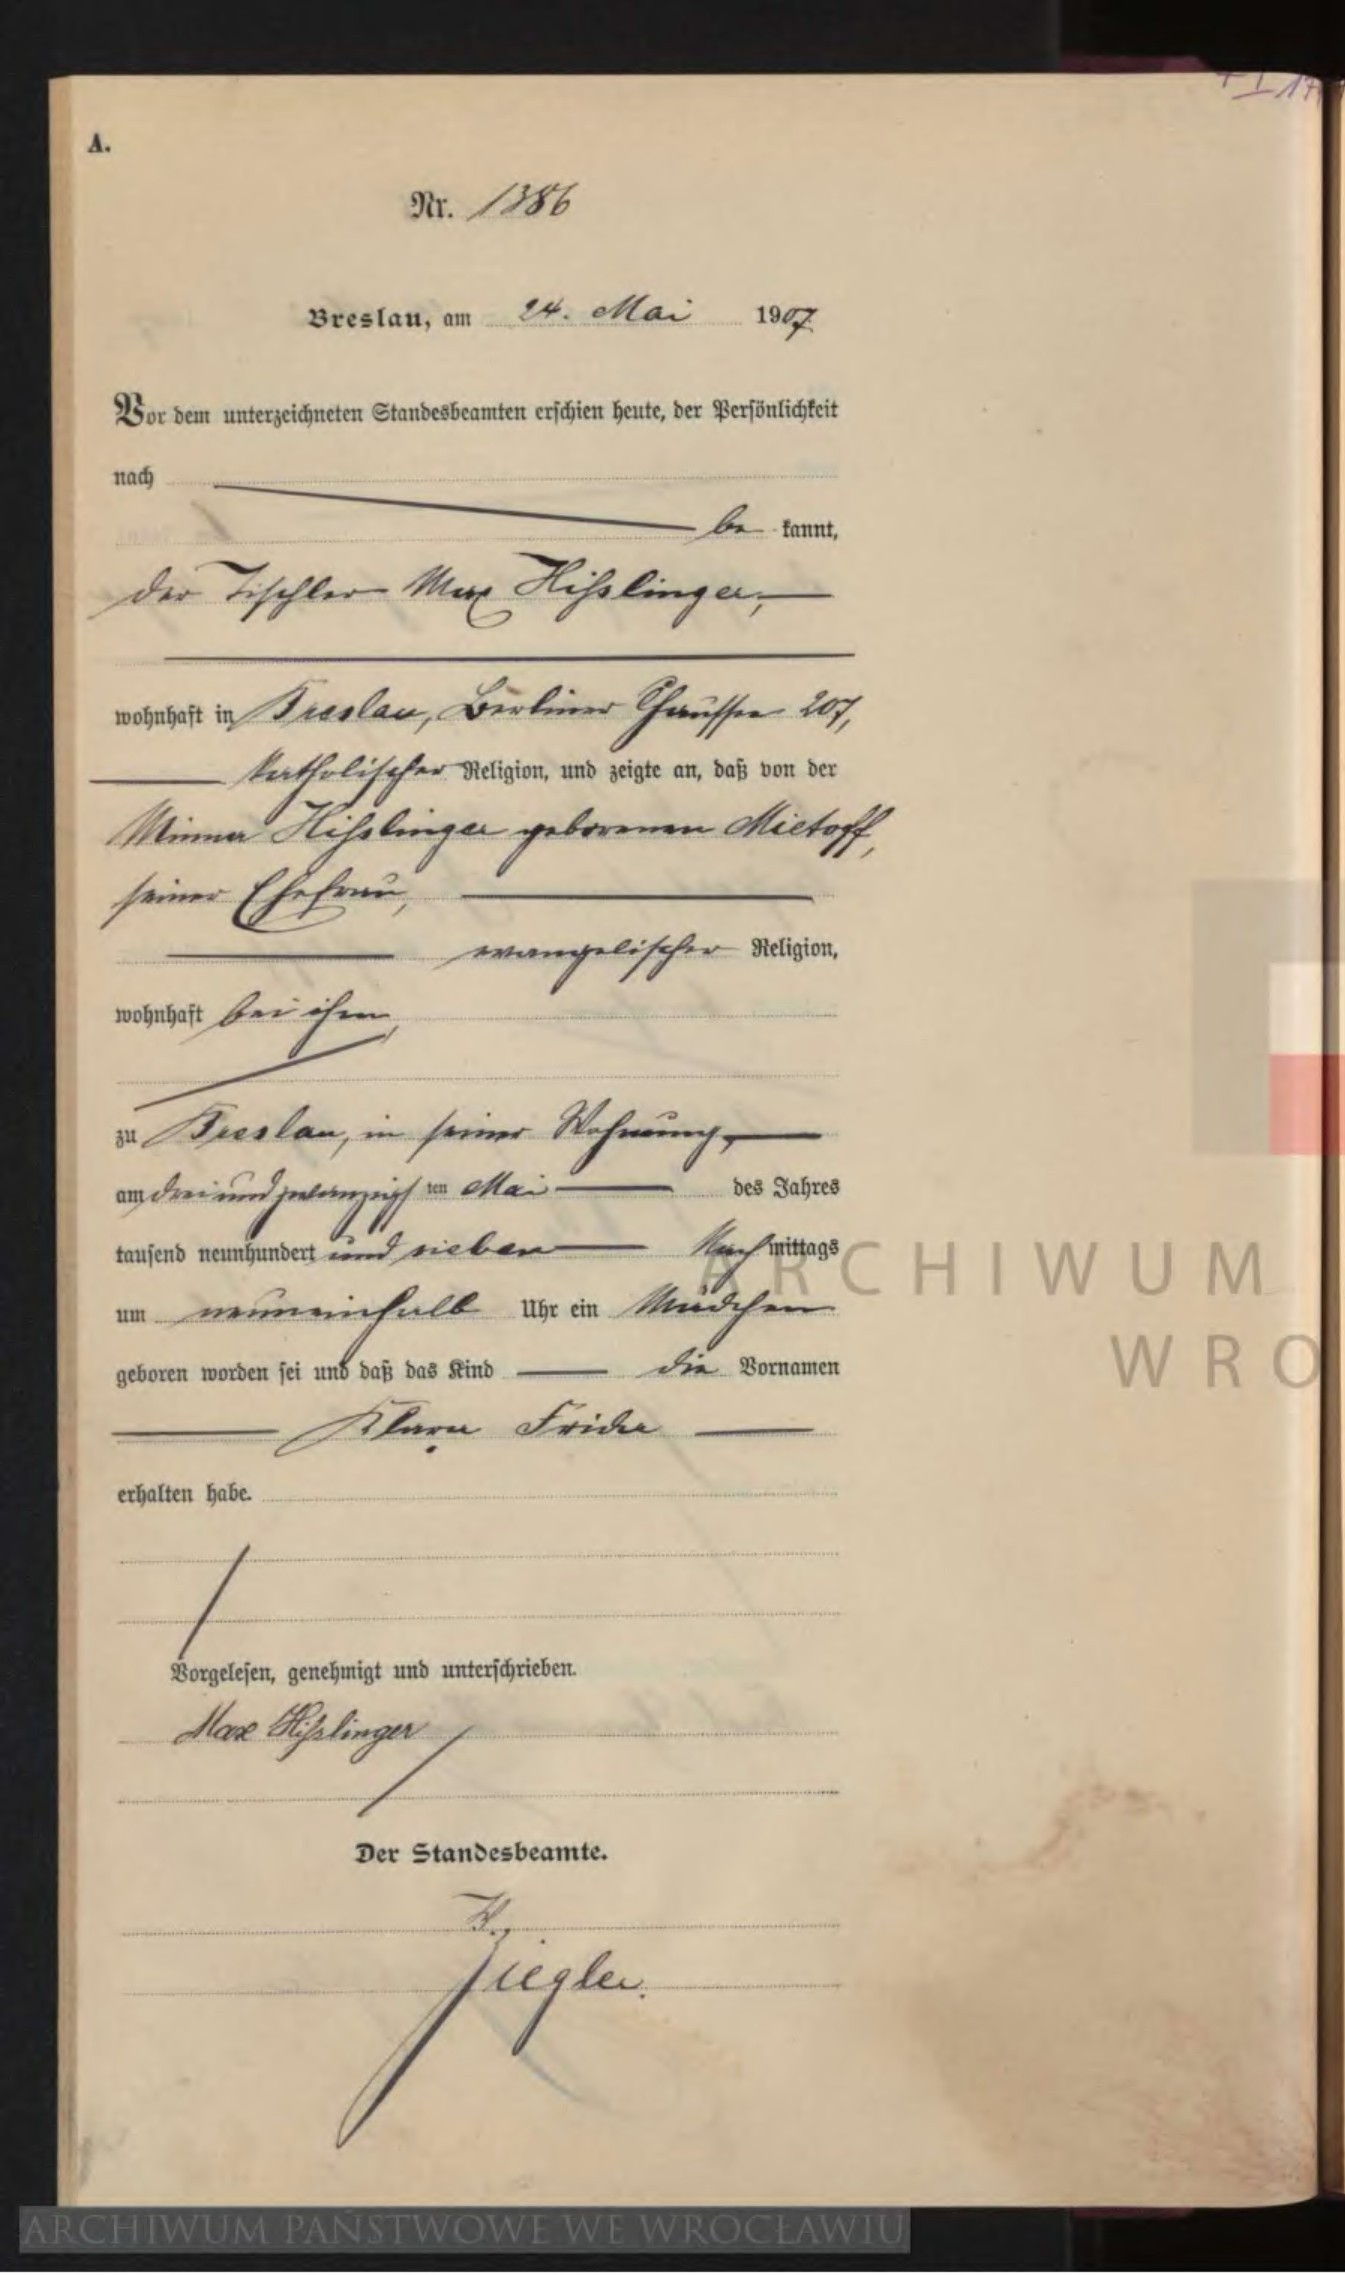 A.
Nr. 1386
Breslau, am 24. Mai 1907
Vor dem unterzeichneten Standesbeamten erschien heute, der Persönlichkeit
nach
be kannt,
der Tischler Max Hißlinger,
wohnhaft in Breslau, Berliner Chaussee 207,
katholischer Religion, und zeigte an, daß von der
Minna Hißlinger geborenen Mietoff,
seiner Ehefrau,
evangelischer Religion,
wohnhaft bei ihm,
zu Breslau, in seiner Wohnung,
am drei und zwanzigsten Mai des Jahres
tausend neunhundert und sieben Nachmittags
um neuneinhalb Uhr ein Mädchen
geboren worden sei und daß das Kind die Vornamen
Klara Frida
erhalten habe.
Vorgelesen, genehmigt und unterschrieben.
Max Hißlinger
Der Standesbeamte.
Ziegler.
ARCHIWUM
WRO
ARCHIWUM PAŃSTWOWE WE WROCŁAWIU